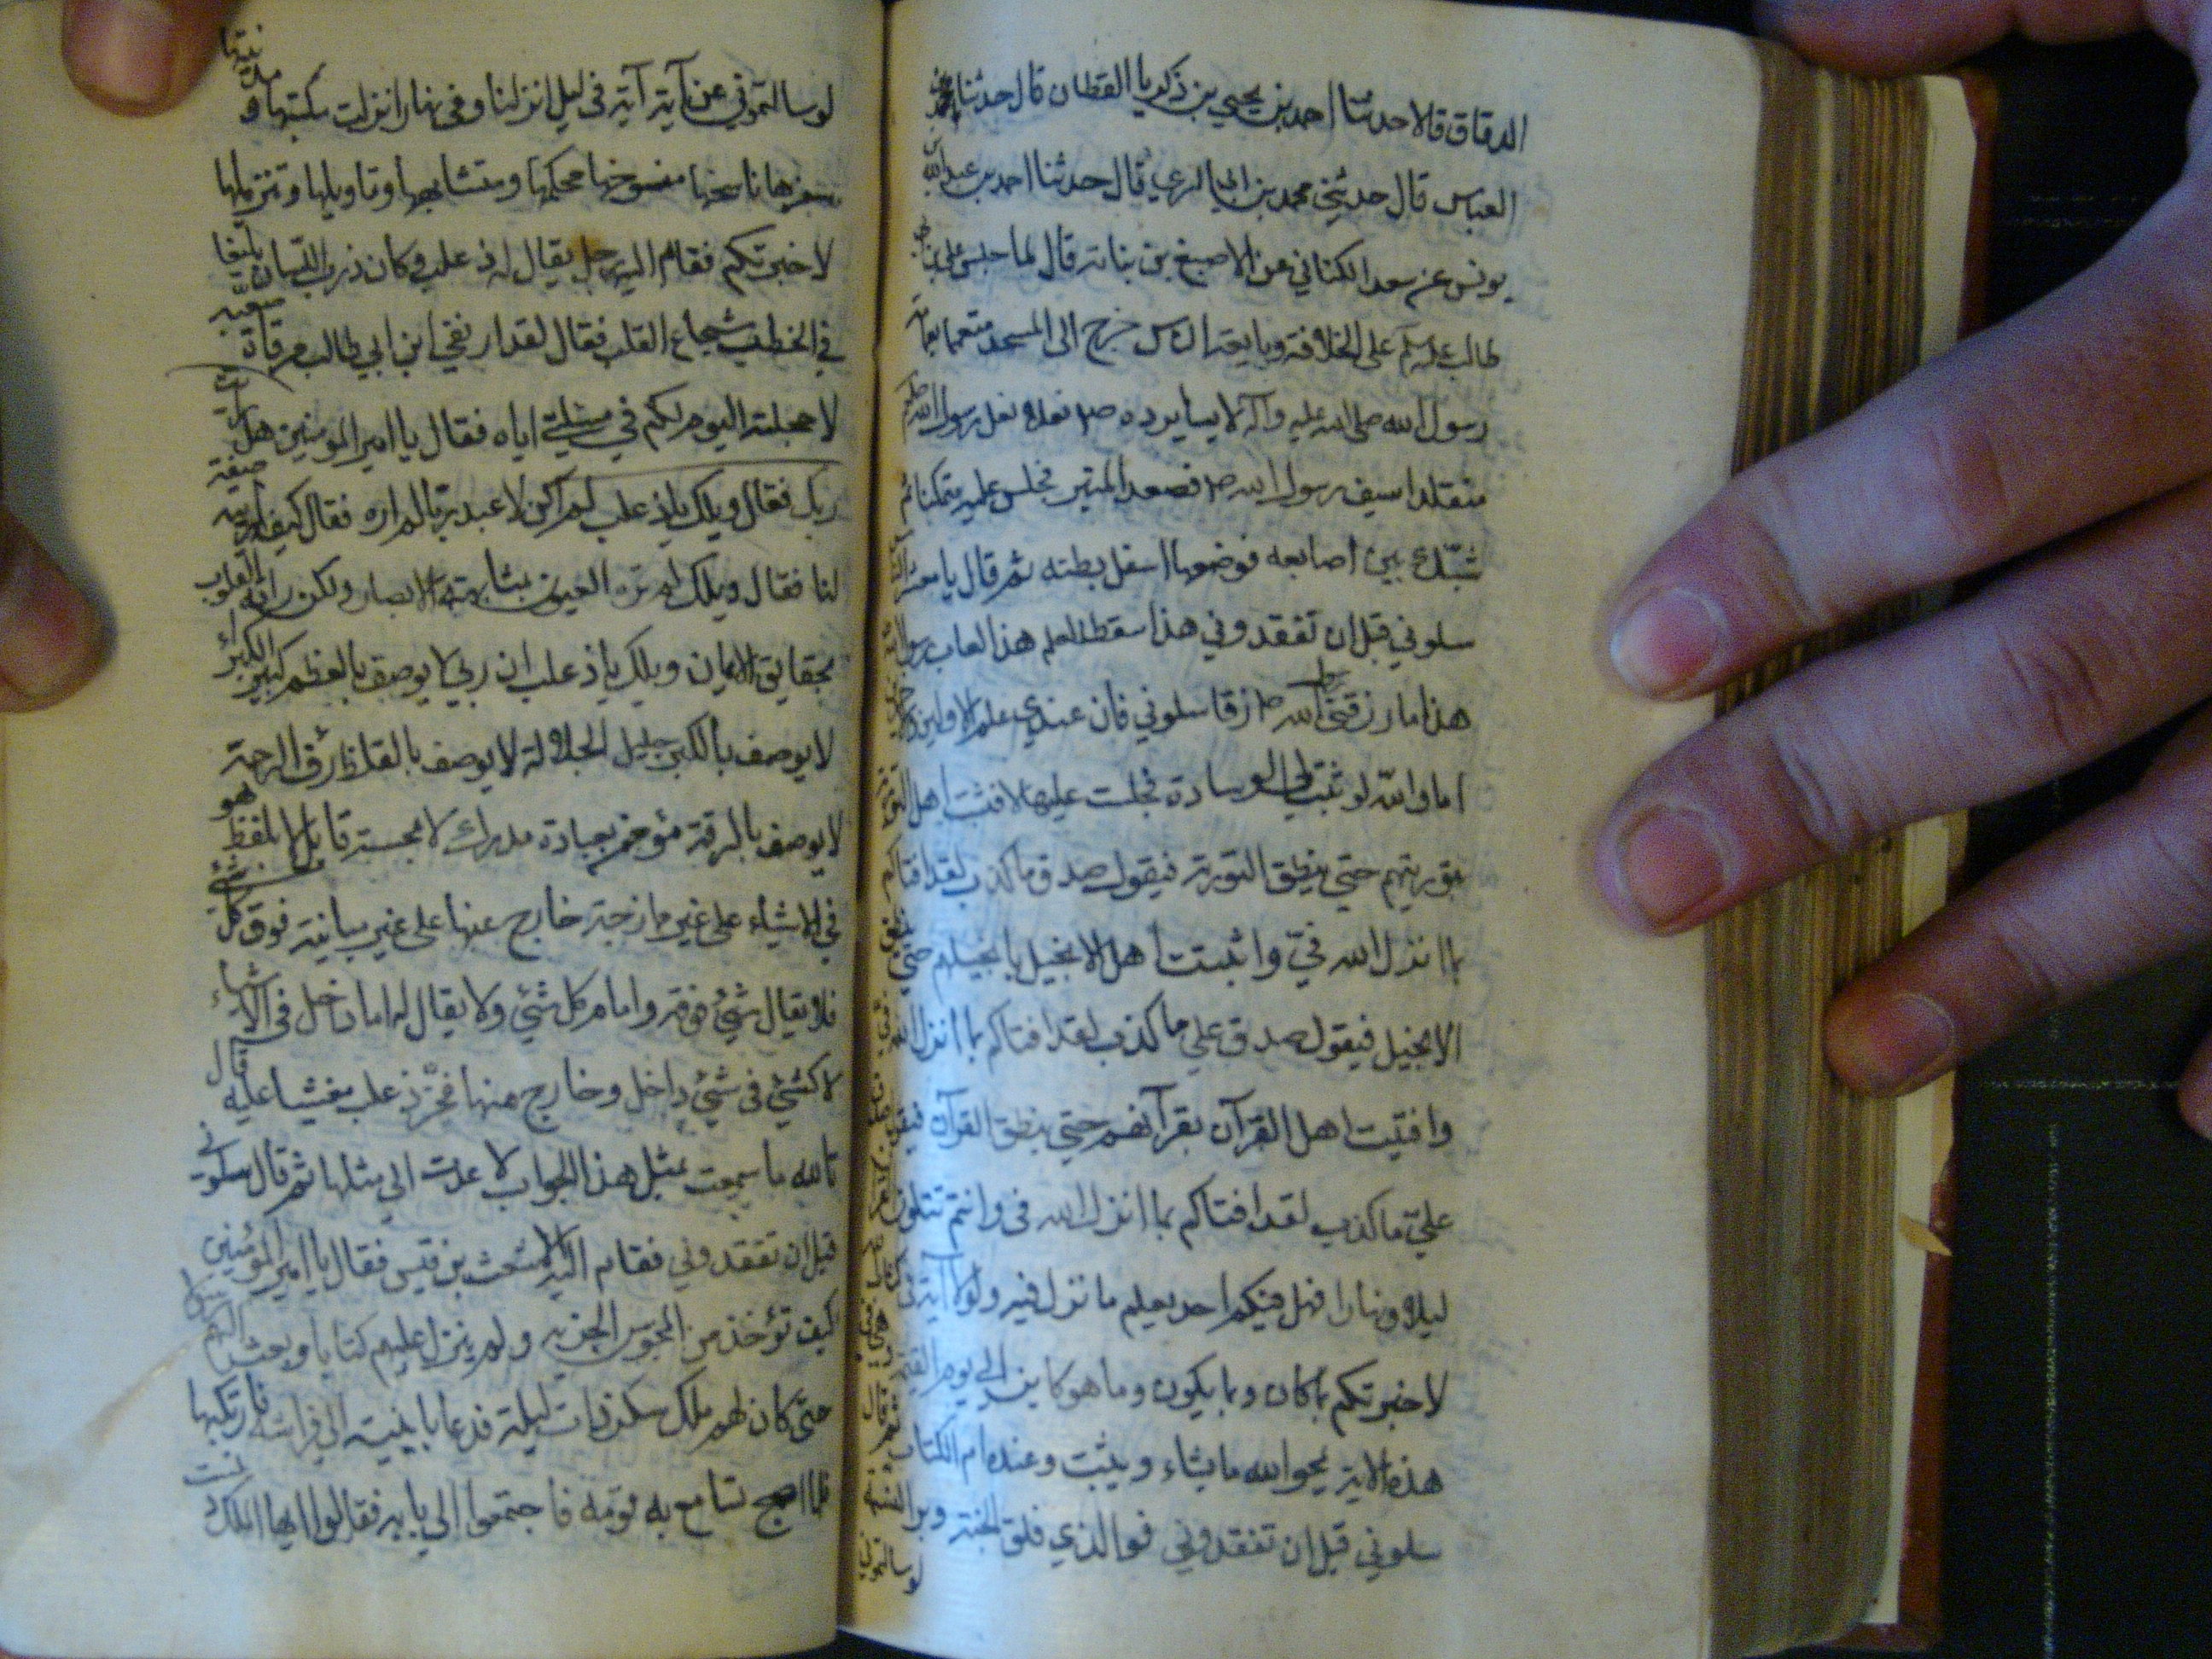 الدقاق قالا حدثنا احمد بن يحيي بن ذكريا القطان قال حدثنا محمد بن
العباس قال حدثني محمد بن ابي السري قال حدثنا احمد بن عبدالله بن
يونس عن سعد الكناني عن الاصبغ بن نباته قال لما جلس علي بن ابي
طالب عليه السلم على الخلافة وبايعه الناس خرج الى المسجد متعمما بعمامة
رسول الله صلى الله عليه وآله لابسا برده ص نعله نعل رسول الله
متقلدا سيف رسول الله ص فصعد المنبر فجلس عليه متمكنا ثم
شبك بين اصابعه فوضعها اسفل بطنه ثم قال يا معشر الناس
سلوني قبل ان تفقدوني هذا سقط العلم هذا لعاب رسول الله
هذا ما زقني رسول الله ص زقا سلوني فان عندي علم الاولين والاخرين
اما والله لو ثنيت لي الوسادة فجلست عليها لافتيت اهل التورية
بتوريتهم حتي ينطق التورية فيقول صدق ما كذب لقد افتاكم
بما انزل الله فيّ وافتيت اهل الانجيل بانجيلهم حتي ينطق
الانجيل فيقول صدق علي ما كذب لقد افتاكم بما انزل الله فيّ
وافتيت اهل القرآن بقرآنهم حتي ينطق القرآن فيقول صدق
عليّ ما كذب لقد افتاكم بما انزل الله فى وانتم تتلون القرآن
ليلا ونهارا فهل فيكم احد يعلم ما نزل فيه ولولا آية في كتاب الله
لاخبرتكم بما كان وبما يكون وما هو كاين الى يوم القيمة وهي
هذه الاية يمحو الله ما يشاء ويثبت وعنده ام الكتاب ثم قال
سلوني قبل ان تفقدوني فوالذي فلق الحبة وبرا النسمة لو سالتموني
لو سالتموني عن آية آية فى ليل انزلنا وفى نهار انزلت مكيتها ومدنيتها
سفريها ناسخها منسوخها محكمها ومتشابهها وتاويلها وتنزيلها
لاخبرتكم فقام اليه رجل يقال له ذعلب وكان ذرب اللسان بليغا
في الخطب شجاع القلب فقال لقد ارتقي ابن ابي طالب مرقاة صعبه
لاخجلنه اليوم لكم في مسئلتي اياه فقال يا امير المومنين هل رايت
ربك فقال ويلك يا ذعلب لم اكن لاعبد ربا لم اره فقال كيف رايته صفه
لنا فقال ويلك لم تره العيون بمشاهدة الابصار ولكن راته القلوب
بحقايق الايمان ويلك يا ذعلب ان ربي لا يوصف بالعظم كبير الكبراء
لا يوصف بالكبر جليل الجلالة لا يوصف بالغلظ رؤف الرحمة
لا يوصف بالرقة مؤمن لا بعبادة مدرك لا بمجسة قايل لا بلفظ هو
في الاشياء على غير مازجة خارج عنها على غير مباينة فوق كل شيء
فلا يقال شئ فوقه وامام كل شئي ولا يقال له امام داخل في الاشياء
لا كشئي فى شئي داخل وخارج منها فخر ذعلب مغشيا عليه قال
تالله ما سمعت بمثل هذا الجواب لا عدت الى مثلها ثم قال سلوني
قبل ان تفقدوني فقام اليه الاشعث بن قيس فقال يا امير المؤمنين
كيف تؤخذ من المجوس الجزيه ولم ينزل عليهم كتابا وبعث اليهم
حتى كان لهم ملك سكر ذات ليلة فدعا بابنته الى فراشه فارتكبها
فلما اصبح تسامع به قومه فاجتمعوا الى بابه فقالوا ايها الملك دنست